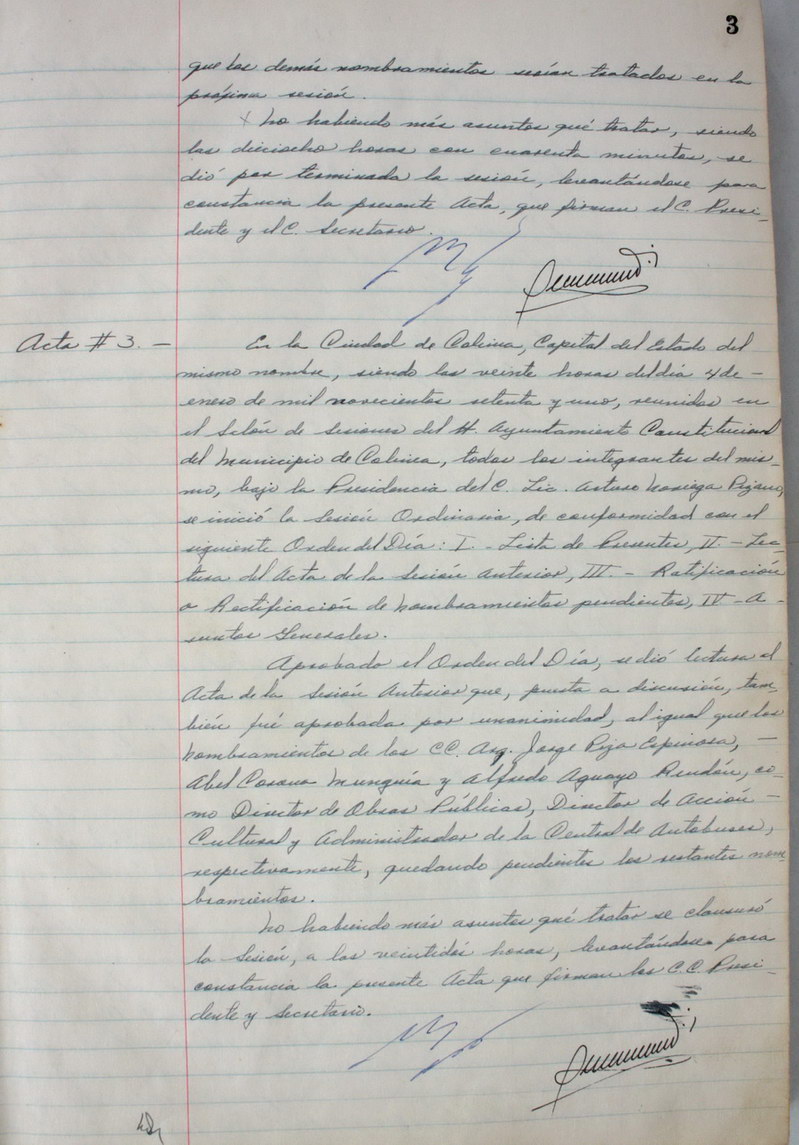 3
que los demás nombramientos serían tratados en la
próxima sesión.
No habiendo más asuntos qué tratar, siendo
las dieciocho horas con cuarenta minutos, se
dió por terminada la sesión, levantándose para
constancia la presente Acta, que firman el C. Presi-
dente y el C. Secretario.
Acta # 3. —
En la Ciudad de Colima, Capital del Estado del
mismo nombre, siendo las veinte horas del día 4 de —
enero de mil novecientos setenta y uno, reunidos en
el Salón de Sesiones del H. Ayuntamiento Constitucional
del Municipio de Colima, todos los integrantes del mis-
mo, bajo la Presidencia del C. Lic. Arturo Noriega Pizano,
se inició la Sesión Ordinaria, de conformidad con el
siguiente Orden del Día: I.- Lista de Presentes, II.- Lec-
tura del Acta de la Sesión anterior, III.- Ratificación
o Rectificación de Nombramientos pendientes, IV.- A-
suntos Generales.
Aprobado el Orden del Día, se dió lectura al
Acta de la Sesión Anterior que, puesta a discusión, tam-
bién fué aprobada por unanimidad, al igual que los
nombramientos de los CC. Arq. Jorge Piza Espinosa, —
Abel Munguía y Alfredo Aguayo Rendón, co-
mo Director de Obras Públicas, Director de Acción —
Cultural y Administrador de la Central de Autobuses,
respectivamente, quedando pendientes los restantes nom-
bramientos.
No habiendo más asuntos qué tratar se clausuró
la Sesión, a las veintidós horas, levantándose para
constancia la presente Acta que firman los C.C. Presi-
dente y Secretario.